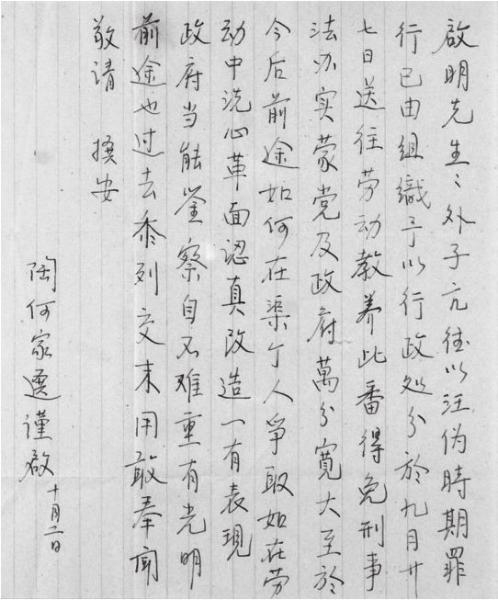 啟明先生：外子亢德以汪伪時期罪
行已由组織予以行政处分於九月廿
七日送往劳动教养此番得免刑事
法办实蒙党及政府萬分寬大至於
今后前途如何在渠个人爭取如在劳
动中洗心革面認真改造一有表現
政府当能鉴察自不难重有光明
前途也过去忝列交末用敢奉闻
敬请 撰安
陶何家選谨啟 十月二日